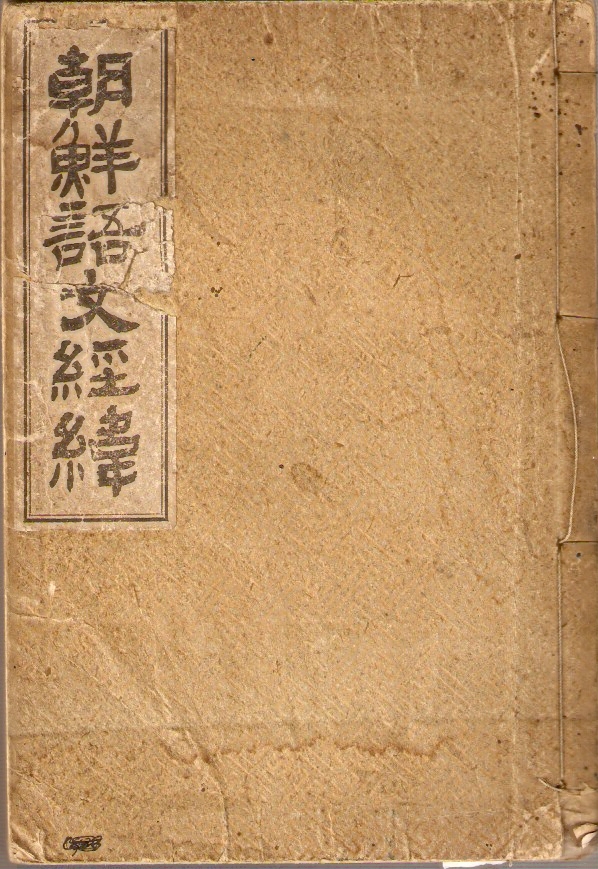 朝鮮語文經緯